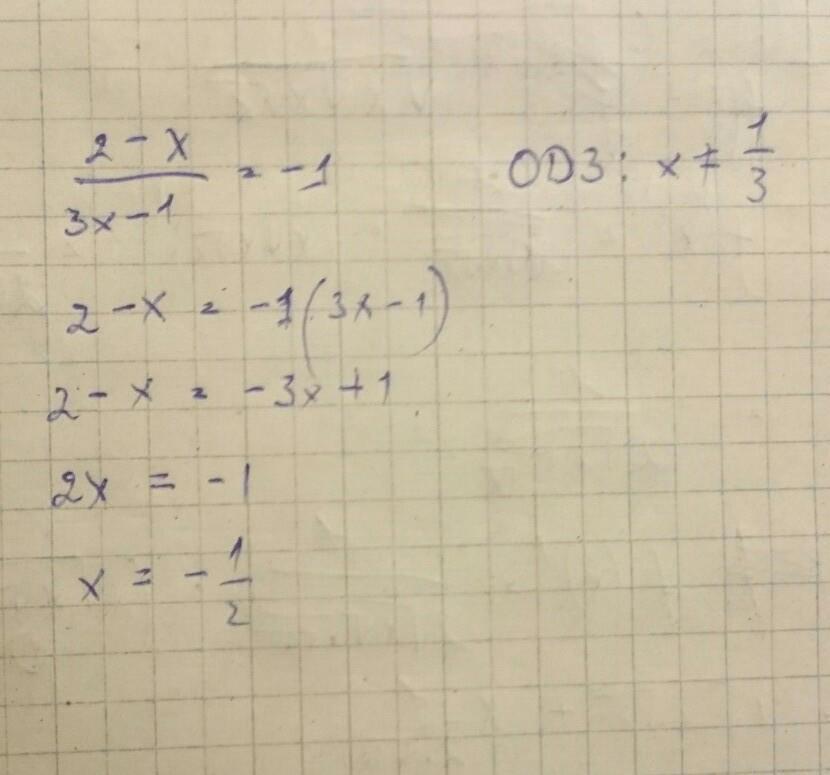 (2 - x)/(3x - 1) = -1
ОДЗ: x ≠ 1/3
2 - x = -1(3x - 1)
2 - x = -3x + 1
2x = -1
x = -1/2